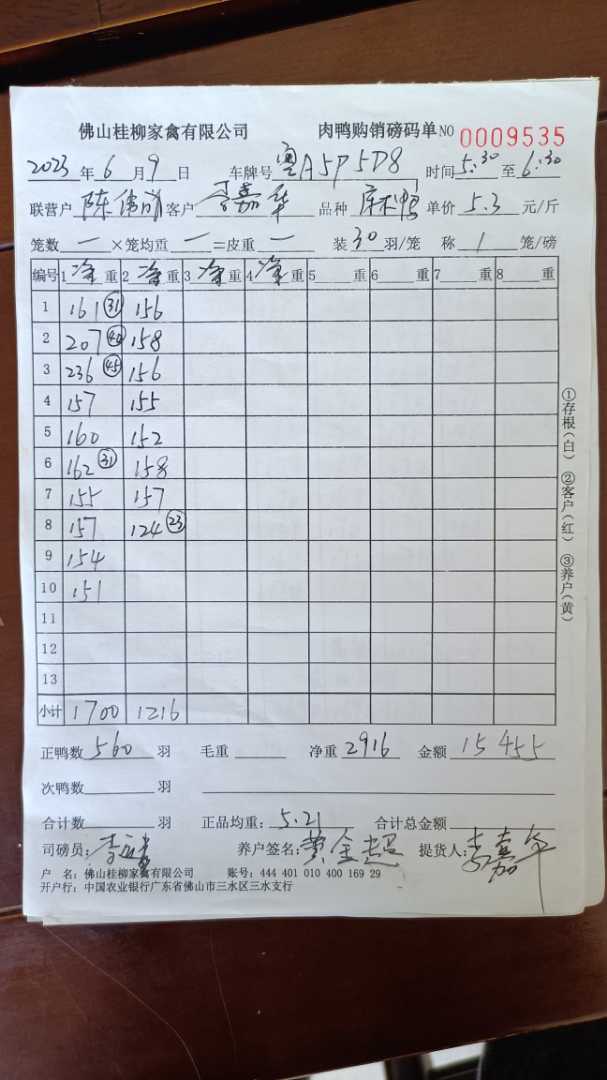 佛山桂柳家禽有限公司 肉鸭购销磅码单 NO 0009535
2023 年 6 月 9 日 车牌号 粤A5P5D8 时间 5:30 至 6:30
联营户 陈伟 客户 李嘉华 品种 麻鸭 单价 5.3 元/斤
笼数 一 ×笼均重 一 =皮重 一 装 30 羽/笼 称 1 笼/磅
编号 1 净 重 2 净 重 3 净 重 4 净 重 5 重 6 重 7 重 8 重
1 161 ㉛ 156
2 207 ㊵ 158
3 236 ㊺ 156
4 157 155
5 160 152
6 162 ㉛ 158
7 155 157
8 157 124 ㉓
9 154
10 151
11
12
13
小计 1700 1216
正鸭数 560 羽 毛重 净重 2916 金额 15455
次鸭数 羽
合计数 羽 正品均重: 5.21 合计总金额
司磅员: 李 养户签名: 黄金超 提货人: 李嘉华
户 名: 佛山桂柳家禽有限公司 账号: 444 401 010 400 169 29
开户行: 中国农业银行广东省佛山市三水区三水支行
①存根(白) ②客户(红) ③养户(黄)